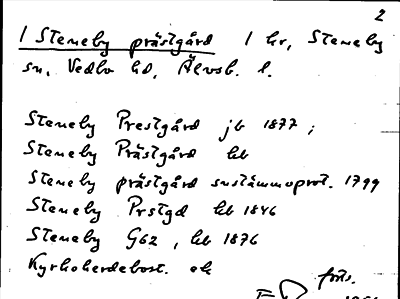 2
1 Steneby prästgård 1 hr, Steneby
sn, Vedbo hd, Älvsb. l.
Steneby Prestgård jb 1877 ;
Steneby Prästgård kb
Steneby prästgård sustämmoprot. 1799
Steneby Prstgd kb 1846
Steneby G62 , kb 1876
Kyrkoherdebost. ek
forts.